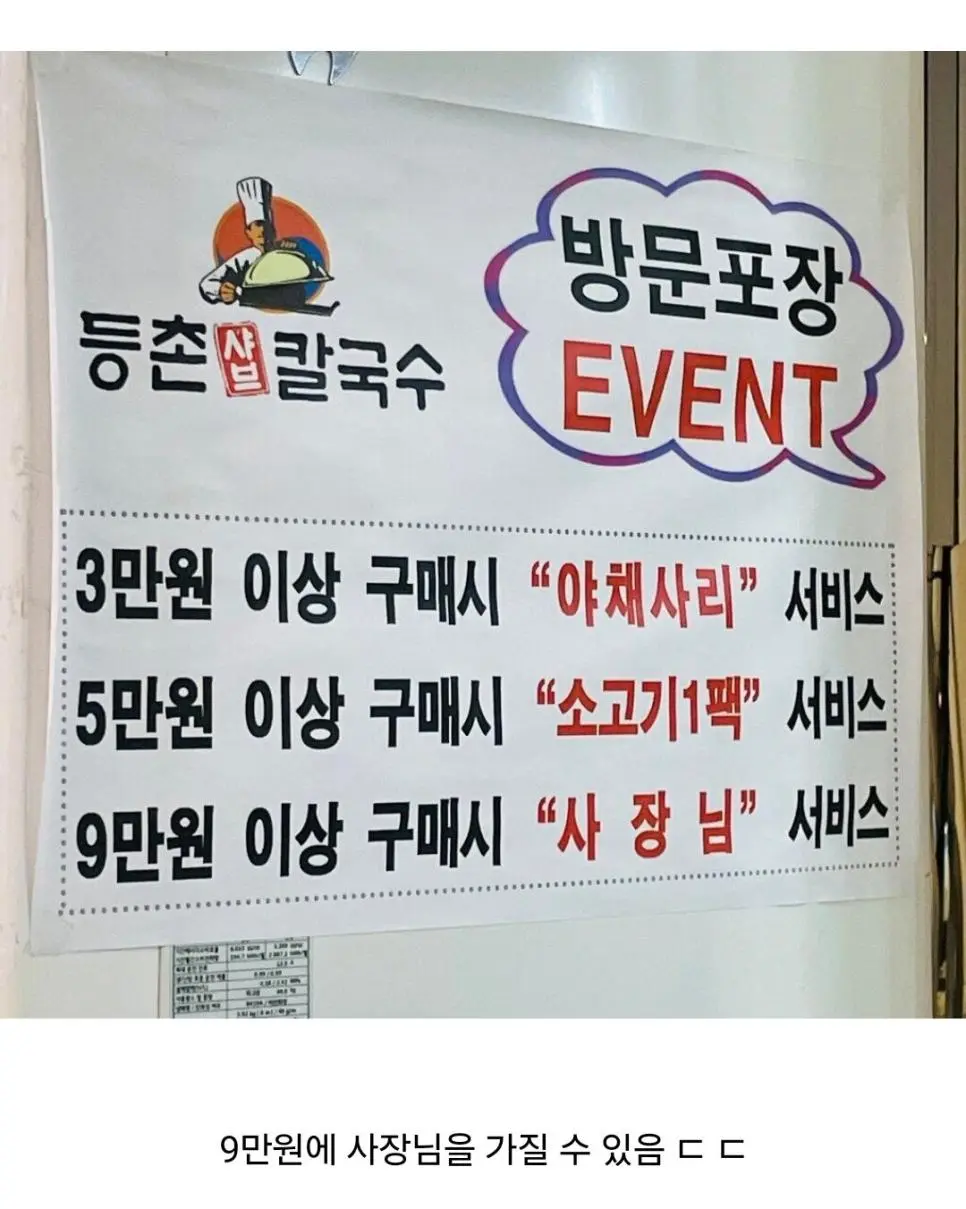 등촌샤브칼국수
방문포장
EVENT
3만원 이상 구매시 “야채사리” 서비스
5만원 이상 구매시 “소고기1팩” 서비스
9만원 이상 구매시 “사 장 님” 서비스
9만원에 사장님을 가질 수 있음 ㄷ ㄷ